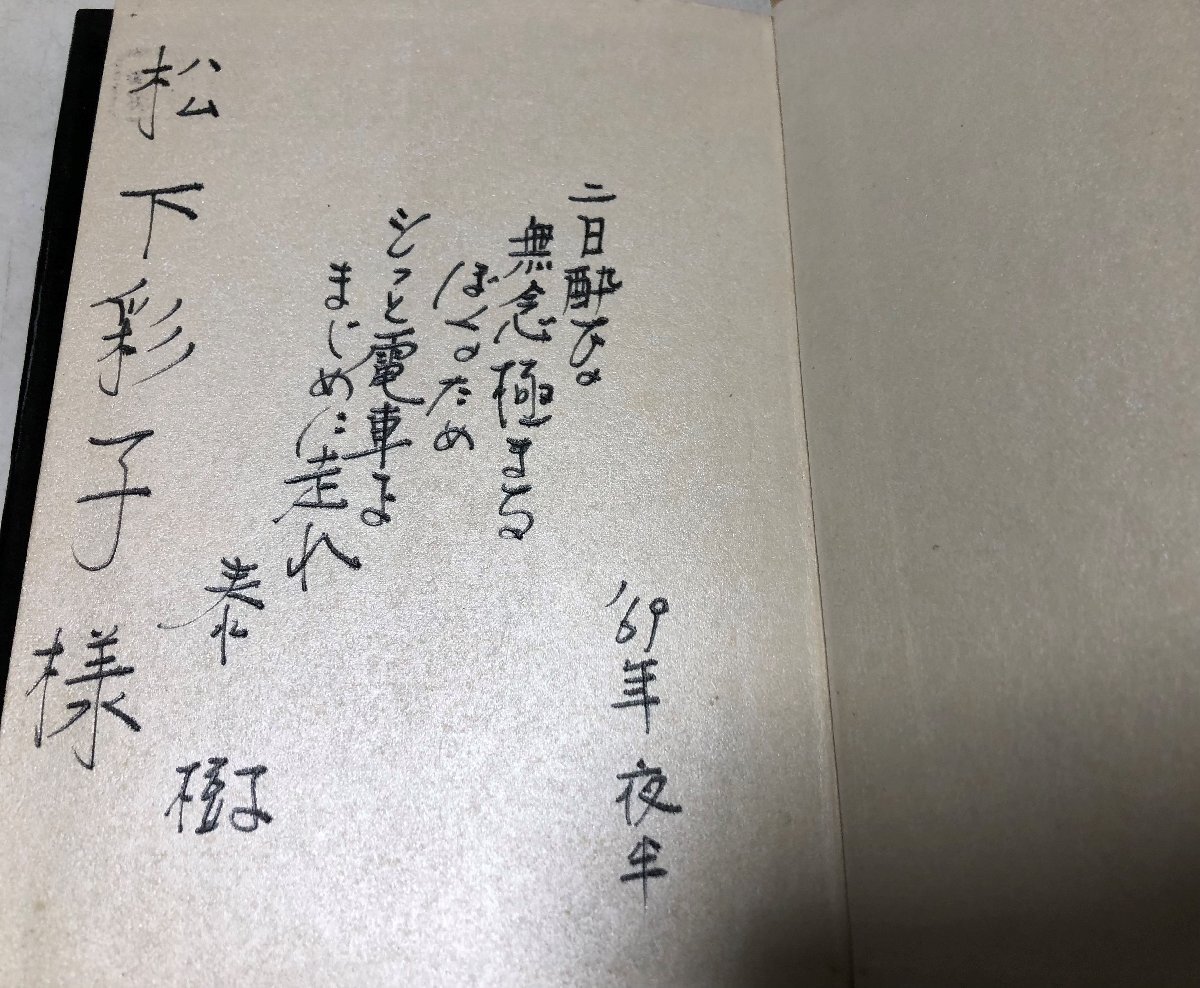 '69年 夜半
二日酔ひの
無念極まる
ぼくのため
もっと電車よ
まじめに走れ
泰樹
松下彩子様